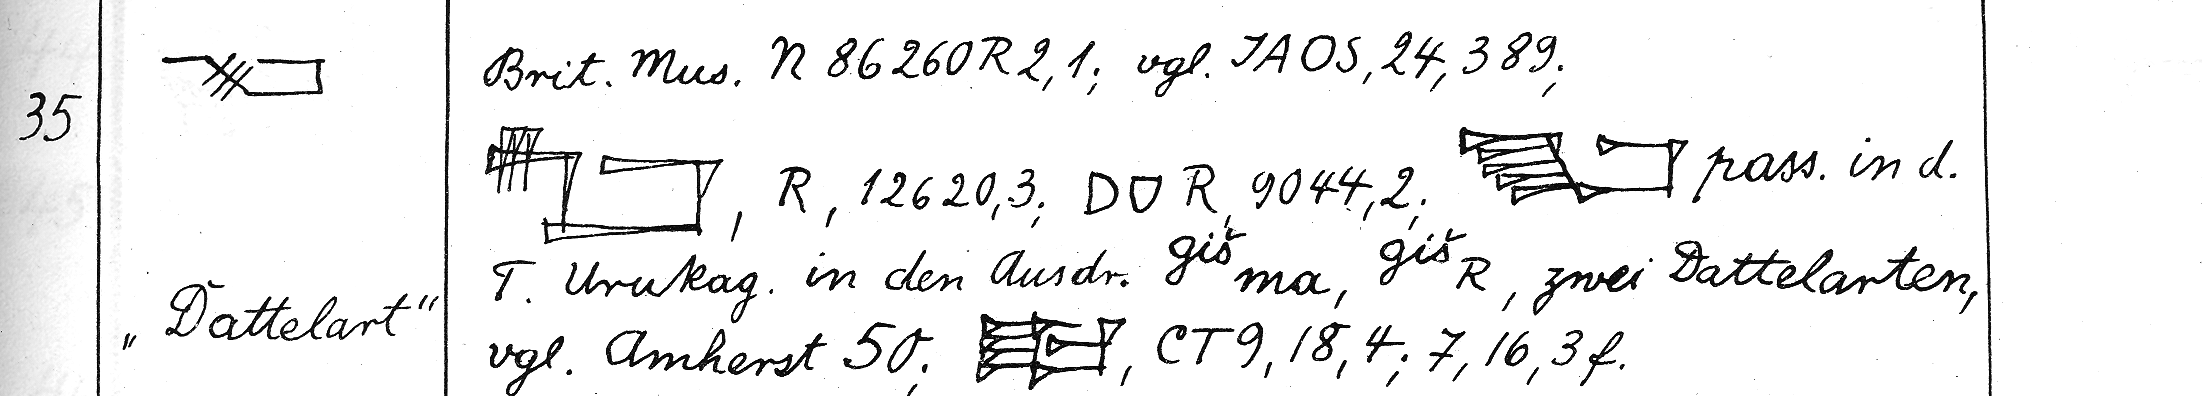 35
Brit. Mus. N 86260 R 2,1; vgl. JAOS, 24, 389;
, R, 12620,3; DU R, 9044,2; pass. in d.
T. Urukag. in den Ausdr. ᵍⁱˢ̌ma, ᵍⁱˢ̌R, zwei Dattelarten,
„Dattelart“
vgl. Amherst 50; , CT 9, 18, 4; 7, 16, 3 f.